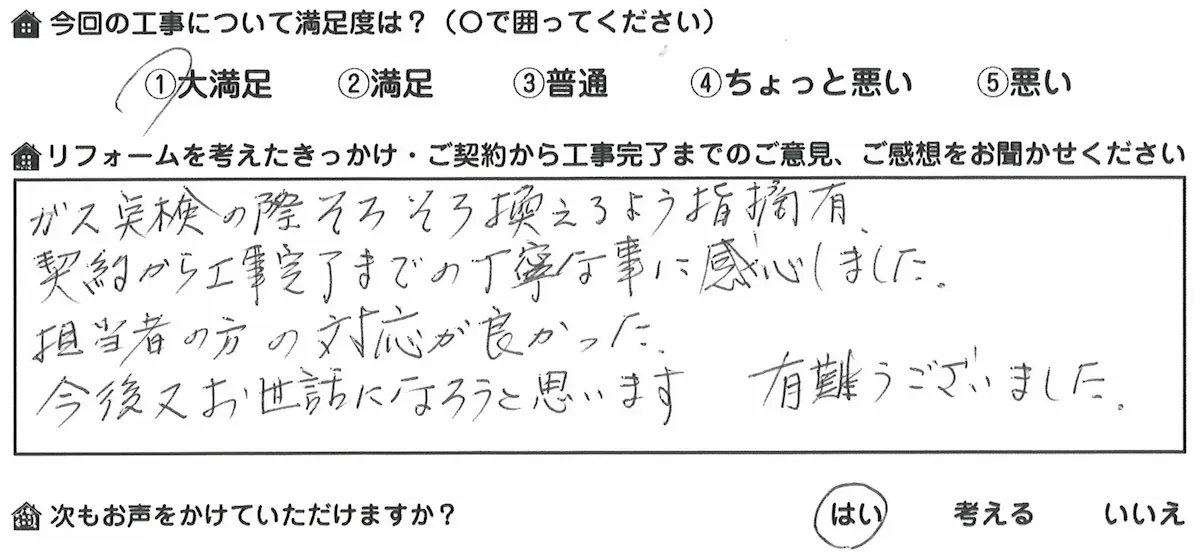 今回の工事について満足度は？（〇で囲ってください）
①大満足 ②満足 ③普通 ④ちょっと悪い ⑤悪い
リフォームを考えたきっかけ・ご契約から工事完了までのご意見、ご感想をお聞かせください
ガス点検の際そろそろ換えるよう指摘有、
契約から工事完了までの丁寧な事に感心しました。
担当者の方の対応が良かった、
今後又お世話になろうと思います 有難うございました。
次もお声をかけていただけますか？ はい 考える いいえ